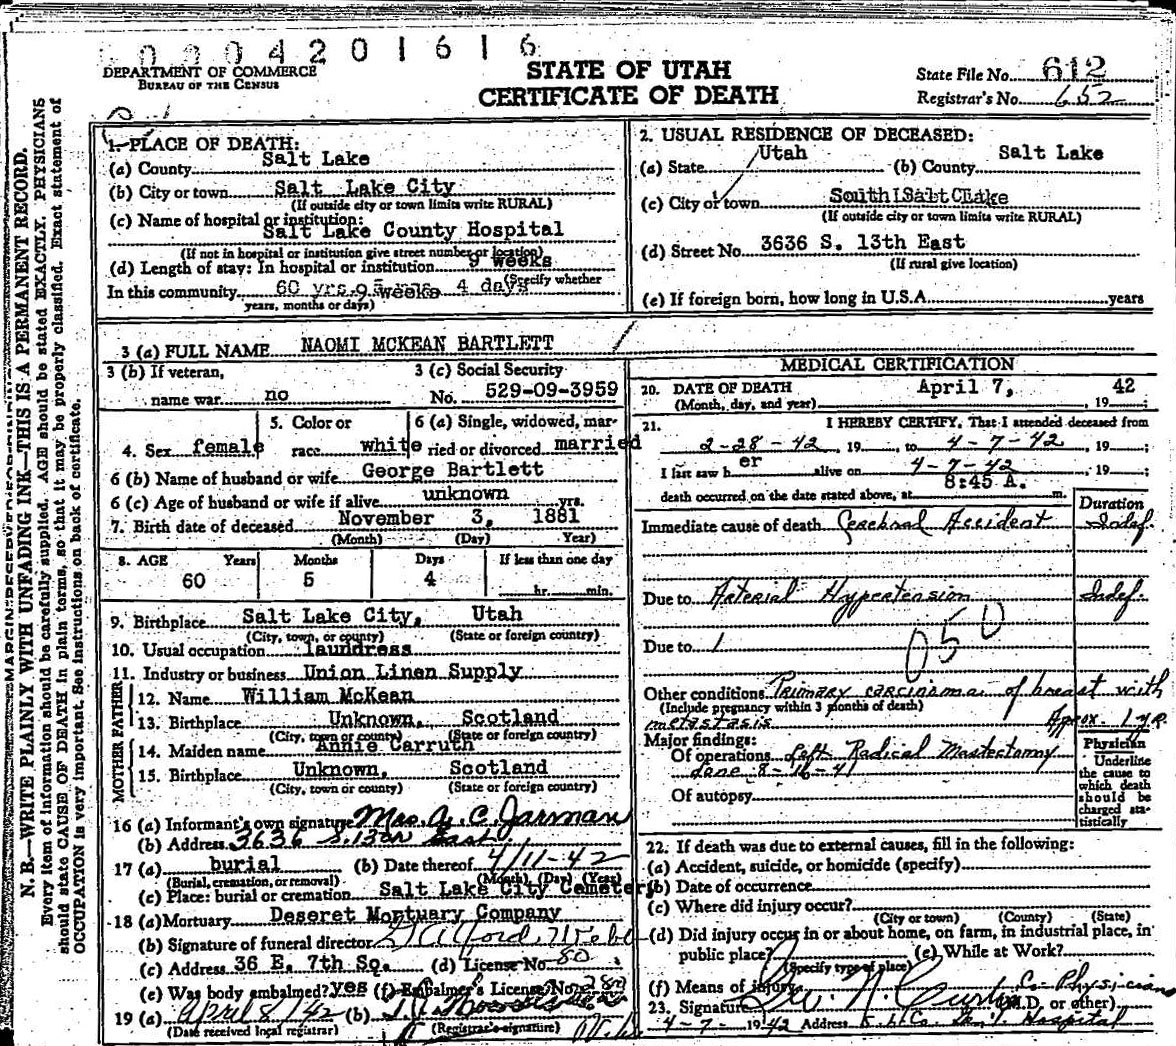 0 0 0 4 2 0 1 6 1 6
DEPARTMENT OF COMMERCE
BUREAU OF THE CENSUS
STATE OF UTAH
CERTIFICATE OF DEATH
State File No. 612
Registrar's No. 652
MARGIN RESERVED FOR BINDING
N. B.—WRITE PLAINLY WITH UNFADING INK—THIS IS A PERMANENT RECORD.
Every item of information should be carefully supplied. AGE should be stated EXACTLY. PHYSICIANS
should state CAUSE OF DEATH in plain terms, so that it may be properly classified. Exact statement of
OCCUPATION is very important. See instructions on back of certificate.
1. PLACE OF DEATH:
(a) County Salt Lake
(b) City or town Salt Lake City
(If outside city or town limits write RURAL)
(c) Name of hospital or institution:
Salt Lake County Hospital
(If not in hospital or institution give street number or location)
(d) Length of stay: In hospital or institution 9 weeks
(Specify whether
In this community 60 yrs. weeks 4 days
years, months or days)
2. USUAL RESIDENCE OF DECEASED:
(a) State Utah (b) County Salt Lake
(c) City or town South Salt Lake
(If outside city or town limits write RURAL)
(d) Street No. 3636 S. 13th East
(If rural give location)
(e) If foreign born, how long in U.S.A. years
3 (a) FULL NAME NAOMI MCKEAN BARTLETT
3 (b) If veteran,
name war. no
3 (c) Social Security
No. 529-09-3959
4. Sex female
5. Color or
race white
6 (a) Single, widowed, mar-
ried or divorced married
6 (b) Name of husband or wife George Bartlett
6 (c) Age of husband or wife if alive unknown yrs.
7. Birth date of deceased November 3, 1881
(Month) (Day) Year)
8. AGE Years Months Days If less than one day
60 5 4 hr. min.
9. Birthplace Salt Lake City, Utah
(City, town, or county) (State or foreign country)
10. Usual occupation laundress
11. Industry or business Union Linen Supply
FATHER
12. Name William McKean
13. Birthplace Unknown, Scotland
(City, town or county) (State or foreign country)
MOTHER
14. Maiden name Annie Carruth
15. Birthplace Unknown, Scotland
(City, town or county) (State or foreign country)
16 (a) Informant's own signature Mrs. A. C. Jarman
(b) Address 3636 S. 13th East
17 (a) burial (b) Date thereof 4/11-42
(Burial, cremation, or removal) (Month) (Day) (Year)
(c) Place: burial or cremation Salt Lake City Cemetery
18 (a) Mortuary Deseret Mortuary Company
(b) Signature of funeral director
(c) Address 36 E. 7th So. (d) License No. 80
(e) Was body embalmed? yes (f) Embalmer's License No. 280
19 (a) April 8/42 (b)
(Date received local registrar) (Registrar's signature)
MEDICAL CERTIFICATION
20. DATE OF DEATH April 7, 1942;
(Month, day, and year)
21. I HEREBY CERTIFY, That I attended deceased from
2-28-42, 19 , to 4-7-42, 19 ;
I last saw her alive on 4-7-42 19 ;
death occurred on the date stated above, at 8:45 A. m.
Duration
Immediate cause of death Cerebral Accident Indef.
Due to Arterial Hypertension Indef.
Due to 050
Other conditions Primary carcinoma of breast with
(Include pregnancy within 3 months of death)
metastasis Aprox. 1 yr.
Major findings:
Of operations Left Radical Mastectomy
done 8-16-41
Of autopsy
Physician
Underline
the cause to
which death
should be
charged sta-
tistically
22. If death was due to external causes, fill in the following:
(a) Accident, suicide, or homicide (specify)
(b) Date of occurrence
(c) Where did injury occur?
(City or town) (County) (State)
(d) Did injury occur in or about home, on farm, in industrial place, in
public place? (e) While at Work?
(Specify type of place)
(f) Means of injury Co. Physician
23. Signature (M.D. or other)
4-7-1942 Address S. L. Co. Gen'l Hospital